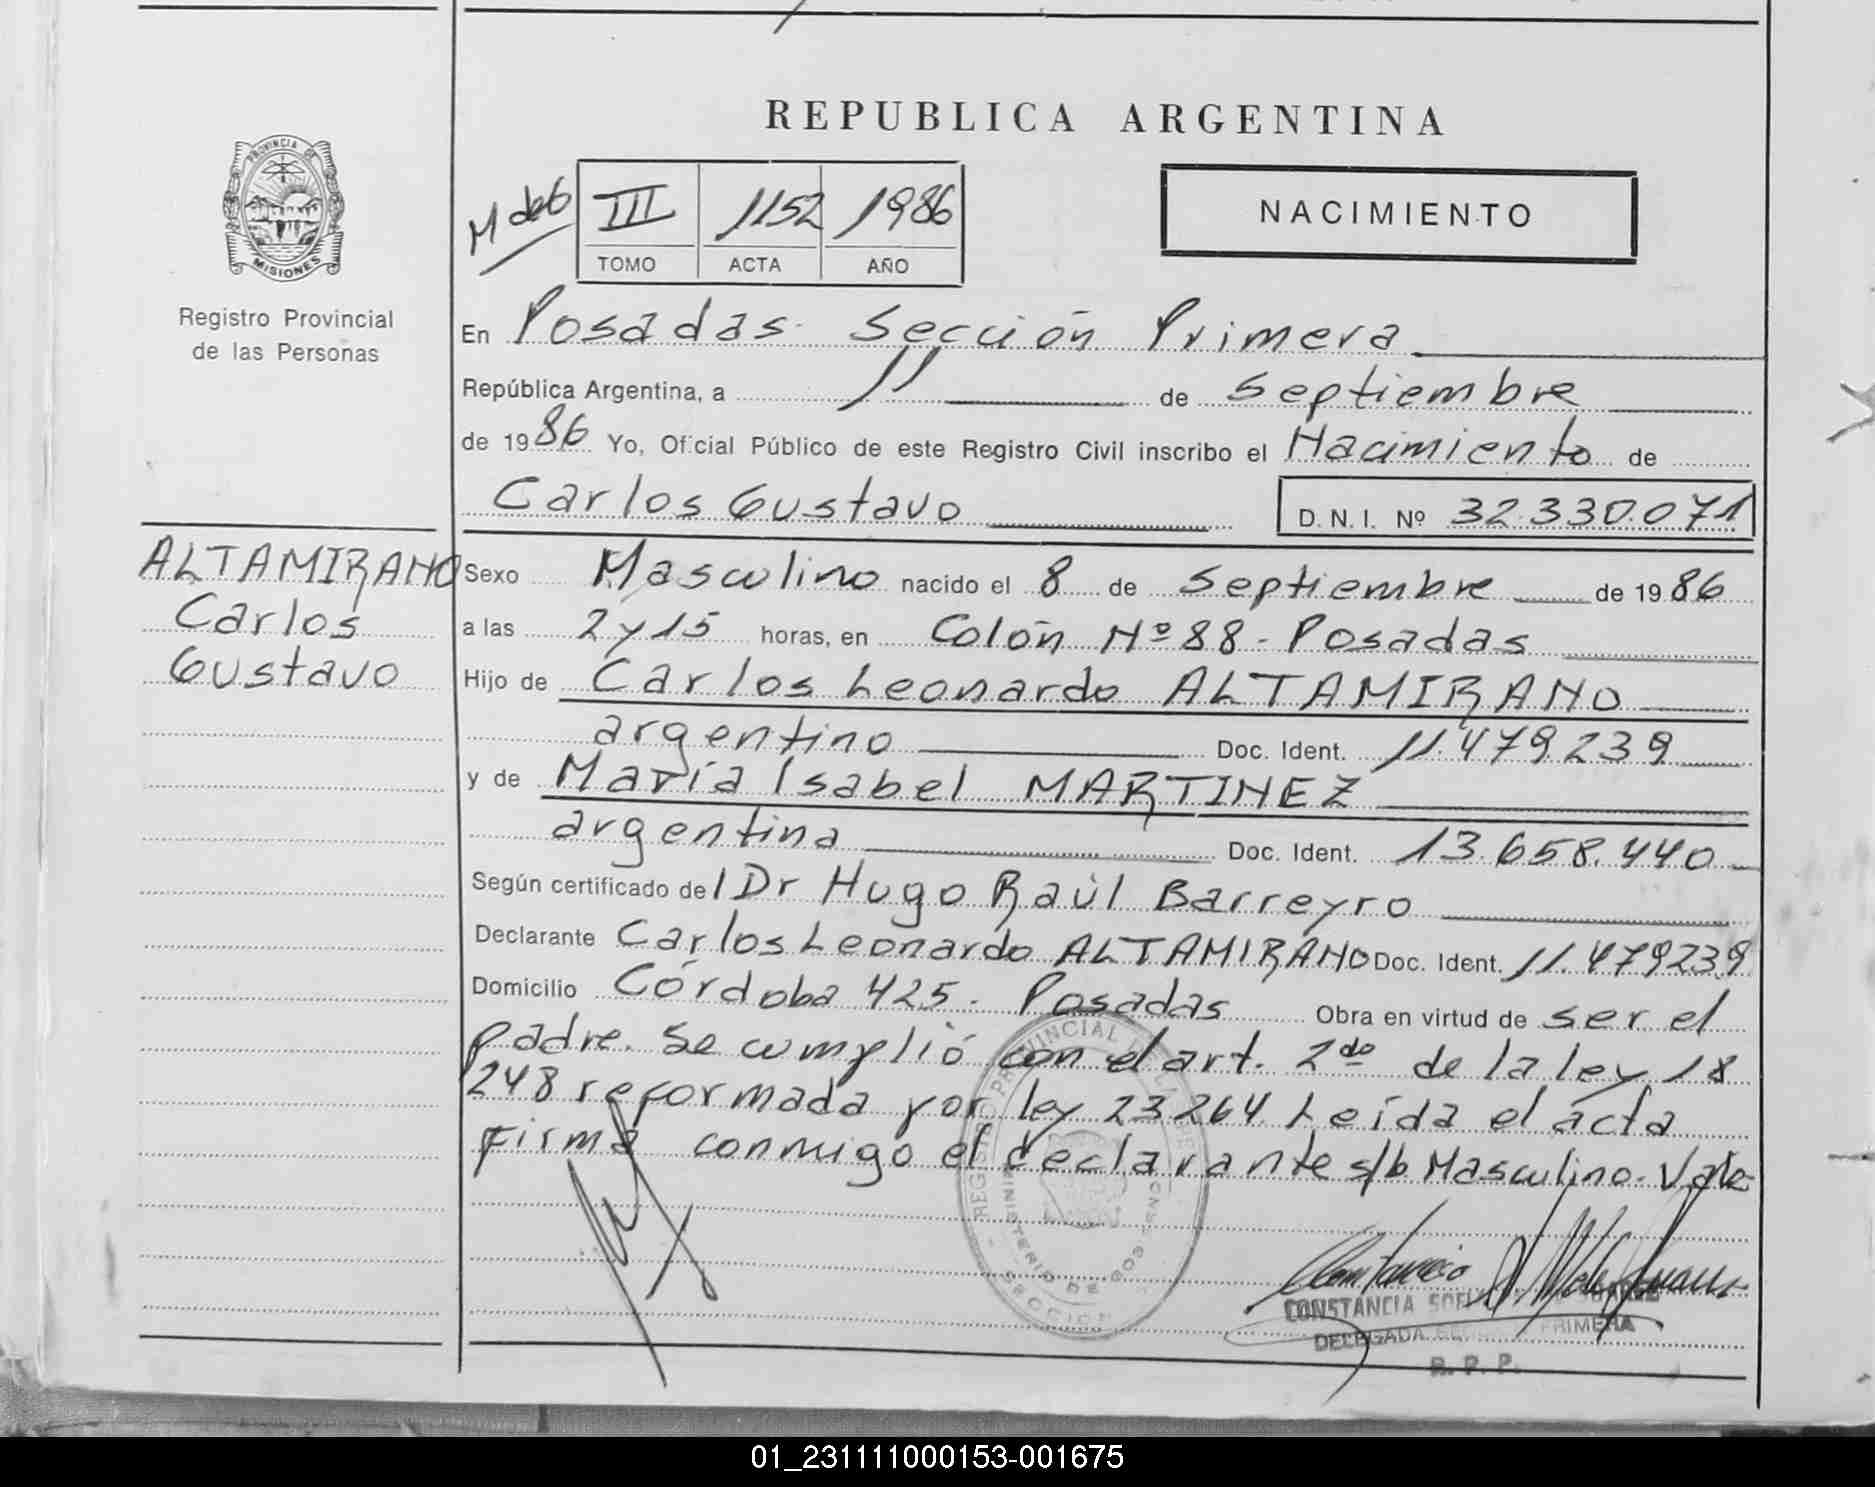 REPUBLICA ARGENTINA
PROVINCIA DE
MISIONES
Registro Provincial
de las Personas
M de 6
III 1152 1986
TOMO ACTA AÑO
NACIMIENTO
En Posadas. Sección Primera
República Argentina, a 11 de Septiembre
de 1986 Yo, Oficial Público de este Registro Civil inscribo el Nacimiento de
Carlos Gustavo D. N. I. Nº 32.330.071
ALTAMIRANO
Carlos
Gustavo
Sexo Masculino nacido el 8 de Septiembre de 1986
a las 2 y 15 horas, en Colón Nº 88 - Posadas
Hijo de Carlos Leonardo ALTAMIRANO
argentino Doc. Ident. 11.479.239
y de María Isabel MARTINEZ
argentina Doc. Ident. 13.658.440
Según certificado del Dr Hugo Raúl Barreyro
Declarante Carlos Leonardo ALTAMIRANO Doc. Ident. 11.479239
Domicilio Córdoba 425. Posadas Obra en virtud de ser el
padre. Se cumplió con el art. 2do de la ley 18
248 reformada por ley 23264. Leída el acta
Firma conmigo el declarante s/b Masculino. Vale
REGISTRO PROVINCIAL DE LAS
MINISTERIO DE GOBIERNO
SECCION
CONSTANCIA
DELEGADA PRIMERA
R. P. P.
01_231111000153-001675